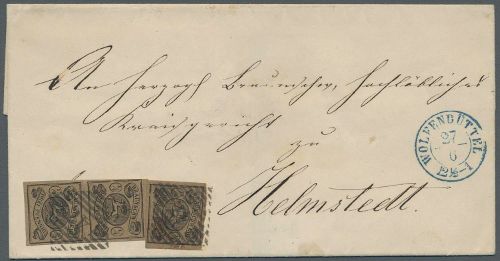 An Herzogl. Braunschw. hochlöbliches
Kreisgericht
zu
Helmstedt.
WOLFENBÜTTEL
27
6
12½-1